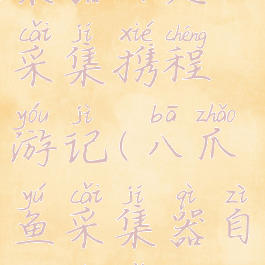 cǎi jí xié chéng
采集携程
yóu jì bā zhǎo
游记(八爪
yú cǎi jí qì zì
鱼采集器自